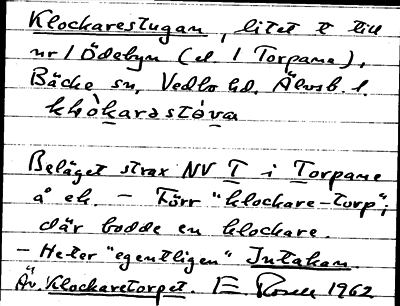 Klockarestugan, litet t till
nr 1 Ödebyn (el. 1 Torpane),
Bäcke sn, Vedbo hd, Älvsb. l.
khòkarastò́van
Beläget strax NV T i Torpane
å ek. - Förr "klockare-torp";
där bodde en klockare.
- Heter "egentligen" Intakan
Äv. Klockaretorpet. E. 1962